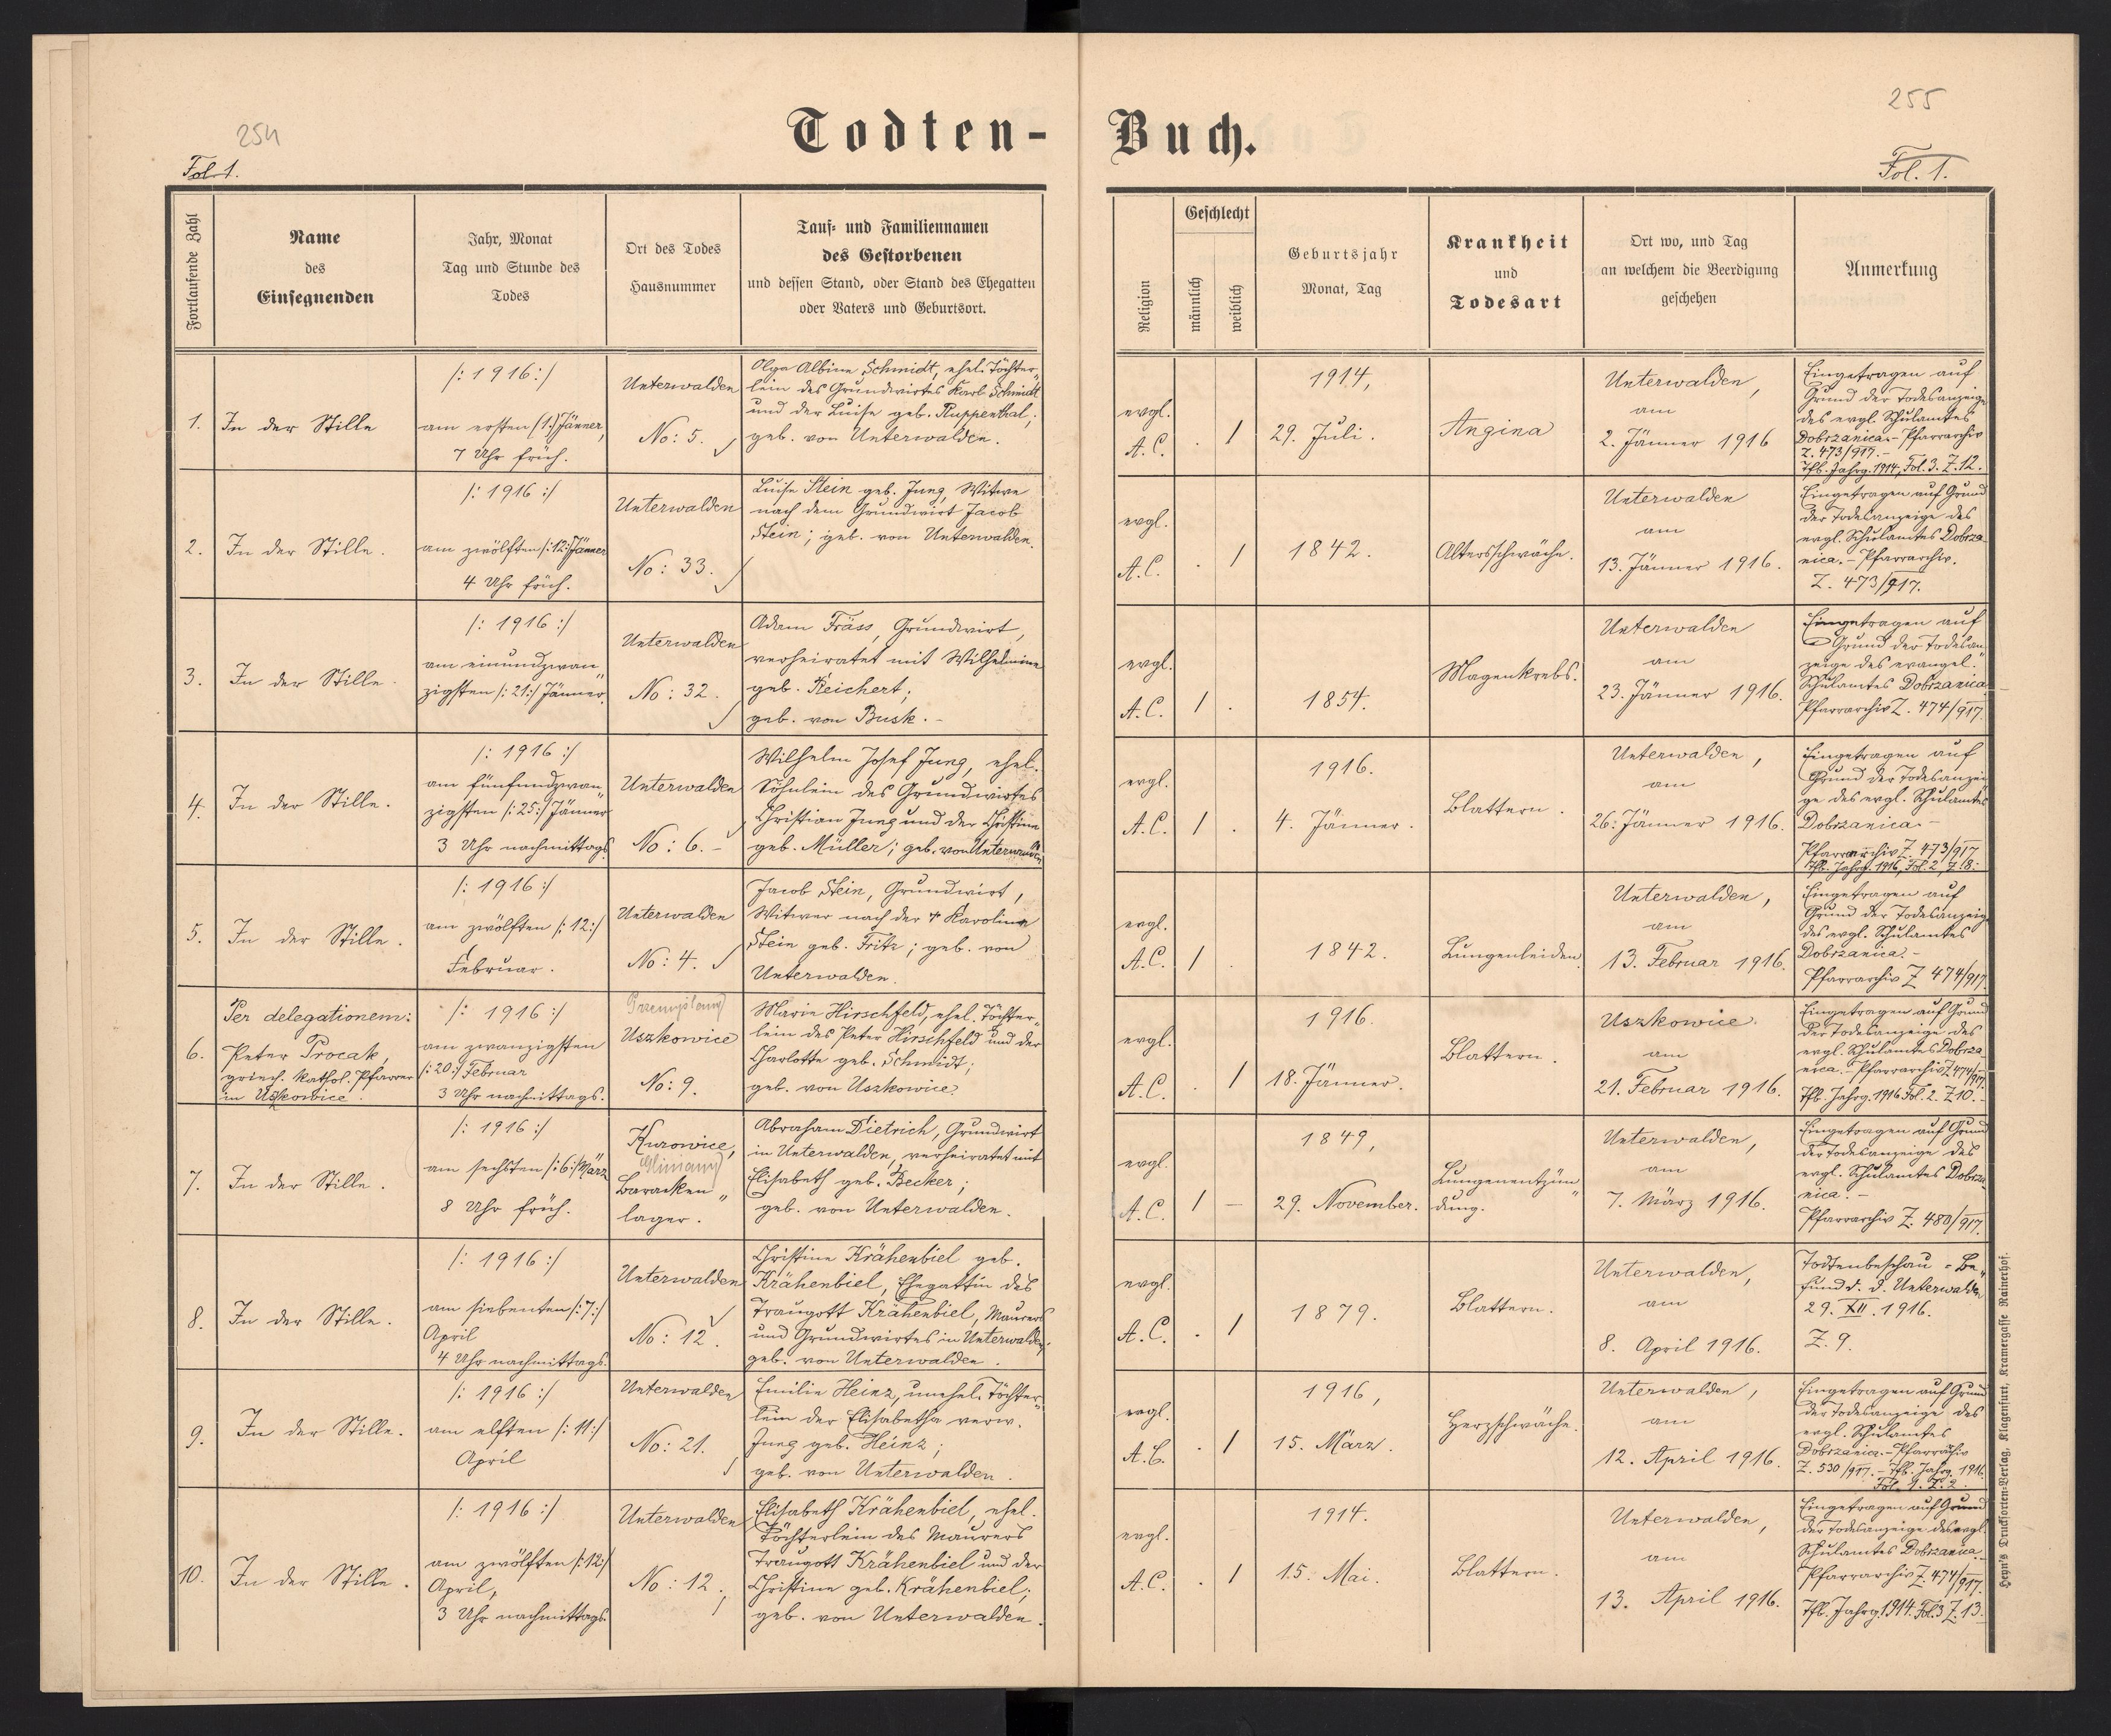 254
Fol. 1.
Todten-
Fortlaufende Zahl
Name
des
Einsegnenden
Jahr, Monat
Tag und Stunde des
Todes
Ort des Todes
Hausnummer
Tauf- und Familiennamen
des Gestorbenen
und dessen Stand, oder Stand des Ehegatten
oder Vaters und Geburtsort.
1.
In der Stille
/: 1916 :/
am ersten (1.) Jänner,
7 Uhr früh.
Unterwalden
No: 5.
Olga Albine Schmidt, ehel. Töchter„
lein des Grundwirtes Karl Schmidt
und der Luise geb. Ruppenthal;
geb. von Unterwalden.
2.
In der Stille.
/: 1916 :/
am zwölften /:12:/ Jänner
4 Uhr früh.
Unterwalden
No: 33.
Luise Stein geb. Jung, Witwe
nach dem Grundwirt Jacob
Stein; geb. von Unterwalden.
3.
In der Stille.
/: 1916 :/
am einundzwan„
zigsten /:21:/ Jänner.
Unterwalden
No: 32.
Adam Fräss, Grundwirt,
verheiratet mit Wilhelmine
geb. Reichert;
geb. von Busk. -
4.
In der Stille.
/: 1916 :/
am fünfundzwan„
zigsten /:25:/ Jänner
3 Uhr nachmittags
Unterwalden
No: 6. -
Wilhelm Josef Jung, ehel.
Söhnlein des Grundwirtes
Christian Jung und der Christine
geb. Müller; geb. von Unterwalden
5.
In der Stille.
/: 1916 :/
am zwölften /:12:/
Februar.
Unterwalden
No: 4.
Jacob Stein, Grundwirt,
Witwer nach der † Karoline
Stein geb. Fritz; geb. von
Unterwalden.
6.
Per delegationem:
Peter Procak,
griech. kathol. Pfarrer
in Uszkowice.
/: 1916 :/
am zwanzigsten
/:20:/ Februar
3 Uhr nachmittags.
Przemyślany
Uszkowice
No: 9.
Marie Hirschfeld, ehel. Töchter„
lein des Peter Hirschfeld und der
Charlotte geb. Schmidt;
geb. von Uszkowice.
7.
In der Stille.
/: 1916 :/
am sechsten /:6:/ März
8 Uhr früh.
Kurowice,
Baracken„
lager.
Abraham Dietrich, Grundwirt
in Unterwalden, verheiratet mit
Elisabeth geb. Becker;
geb. von Unterwalden.
8.
In der Stille.
/: 1916 :/
am siebenten /:7:/
April
4 Uhr nachmittags.
Unterwalden
No: 12.
Christine Krähenbiel geb.
Krähenbiel, Ehegattin des
Traugott Krähenbiel, Maurers
und Grundwirtes in Unterwalden;
geb. von Unterwalden.
9.
In der Stille.
/: 1916 :/
am elften /:11:/
April
Unterwalden
No: 21.
Emilie Heinz, unehel. Töchter„
lein der Elisabetha verw.
Jung geb. Heinz;
geb. von Unterwalden.
10.
In der Stille.
/: 1916 :/
am zwölften /:12:/
April,
3 Uhr nachmittags.
Unterwalden
No: 12.
Elisabeth Krähenbiel, ehel.
Töchterlein des Maurers
Traugott Krähenbiel und der
Christine geb. Krähenbiel;
geb. von Unterwalden.
255
Buch.
Fol. 1.
Religion
Geschlecht
männlich
weiblich
Geburtsjahr
Monat, Tag
Krankheit
und
Todesart
Ort wo, und Tag
an welchem die Beerdigung
geschehen
Anmerkung
evgl.
A.C.
. 1
1914,
29. Juli.
Angina
Unterwalden,
am
2. Jänner 1916
Eingetragen auf
Grund der Todesanzeige
des evgl. Schulamtes
Dobrzanica. - Pfarrarchiv
Z. 473/917. -
Tfb. Jahrg. 1914, Fol. 3. Z. 12.
evgl.
A.C.
. 1
1842.
Altersschwäche.
Unterwalden
am
13. Jänner 1916.
Eingetragen auf Grund
der Todesanzeige des
evgl. Schulamtes Dobrza-
nica. - Pfarrarchiv.
Z. 473/917.
evgl.
A.C.
1 .
1854.
Magenkrebs.
Unterwalden
am
23. Jänner 1916.
Eingetragen auf
Grund der Todesan„
zeige des evangel.
Schulamtes Dobrzanica
Pfarrarchiv Z. 474/917.
evgl.
A.C.
1 .
1916.
4. Jänner.
Blattern.
Unterwalden,
am
26. Jänner 1916.
Eingetragen auf
Grund der Todesanzei„
ge des evgl. Schulamtes
Dobrzanica. -
Pfarrarchiv Z. 473/917
Tfb. Jahrg. 1916, Fol. 2, Z. 8.
evgl.
A.C.
1 .
1842.
Lungenleiden.
Unterwalden,
am
13. Februar 1916.
Eingetragen auf
Grund der Todesanzeige
des evgl. Schulamtes
Dobrzanica. -
Pfarrarchiv Z. 474/917
evgl.
A.C.
. 1
1916.
18. Jänner.
Blattern.
Uszkowice.
am
21. Februar 1916.
Eingetragen auf Grund
der Todesanzeige des
evgl. Schulamtes Dobrza-
nica. - Pfarrarchiv Z. 474/917.
Tfb. Jahrg. 1916 Fol. 2. Z. 10. -
evgl.
A.C.
1 -
1849,
29. November.
Lungenentzün„
dung.
Unterwalden,
am
7. März 1916.
Eingetragen auf Grund
der Todesanzeige des
evgl. Schulamtes Dobrza-
nica. -
Pfarrarchiv Z. 480/917.
evgl.
A.C.
. 1
1879.
Blattern.
Unterwalden,
am
8. April 1916.
Todtenbeschau = Be„
fund d. d. Unterwalden
29. XII. 1916.
Z. 9.
evgl.
A.C.
. 1
1916,
15. März.
Herzschwäche.
Unterwalden,
am
12. April 1916.
Eingetragen auf Grund
der Todesanzeige des
evgl. Schulamtes
Dobrzanica. - Pfarrarchiv
Z. 530/917. - Tfb. Jahrg. 1916
Fol. 1. Z. 2.
evgl.
A.C.
. 1
1914.
15. Mai.
Blattern.
Unterwalden,
am
13. April 1916.
Eingetragen auf Grund
der Todesanzeige des evgl.
Schulamtes Dobrzanica.
Pfarrarchiv Z. 474/917.
Tfb. Jahrg. 1914. Fol. 3 Z. 13.
Heyn's Drucksorten-Verlag, Klagenfurt, Kramergasse Rainerhof.